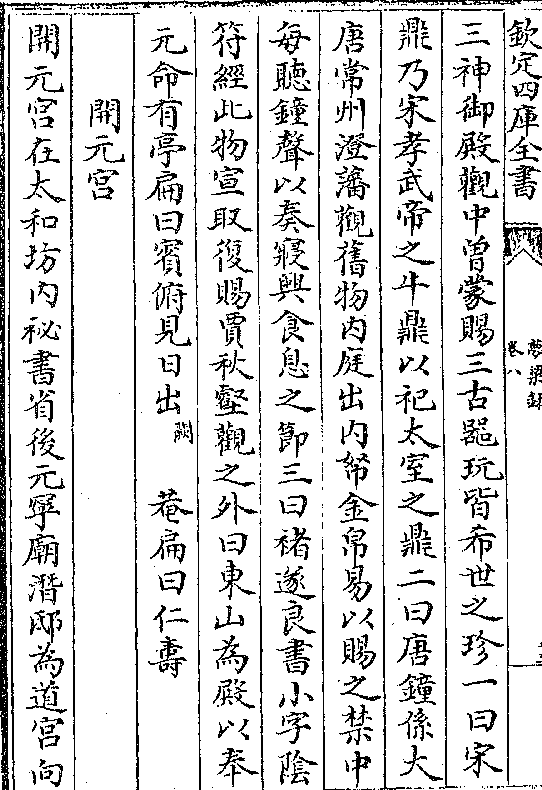 欽定四庫全書
夢粱錄
卷八
三神御殿觀中曾蒙賜三古器玩皆希世之珍一曰宋
鼎乃宋孝武帝之牛鼎以祀太室之鼎二曰唐鐘係大
唐常州澄清觀舊物内庭出内帑金帛易以賜之禁中
每聽鐘聲以奏寢興食息之節三曰褚遂良書小字陰
符經此物宣取復賜賈秋壑觀之外曰東山為殿以奉
元命有亭扁曰賓俯見日出闕 菴扁曰仁壽
開元宮
開元宮在太和坊内秘書省後元寧廟潛邸為道宮向